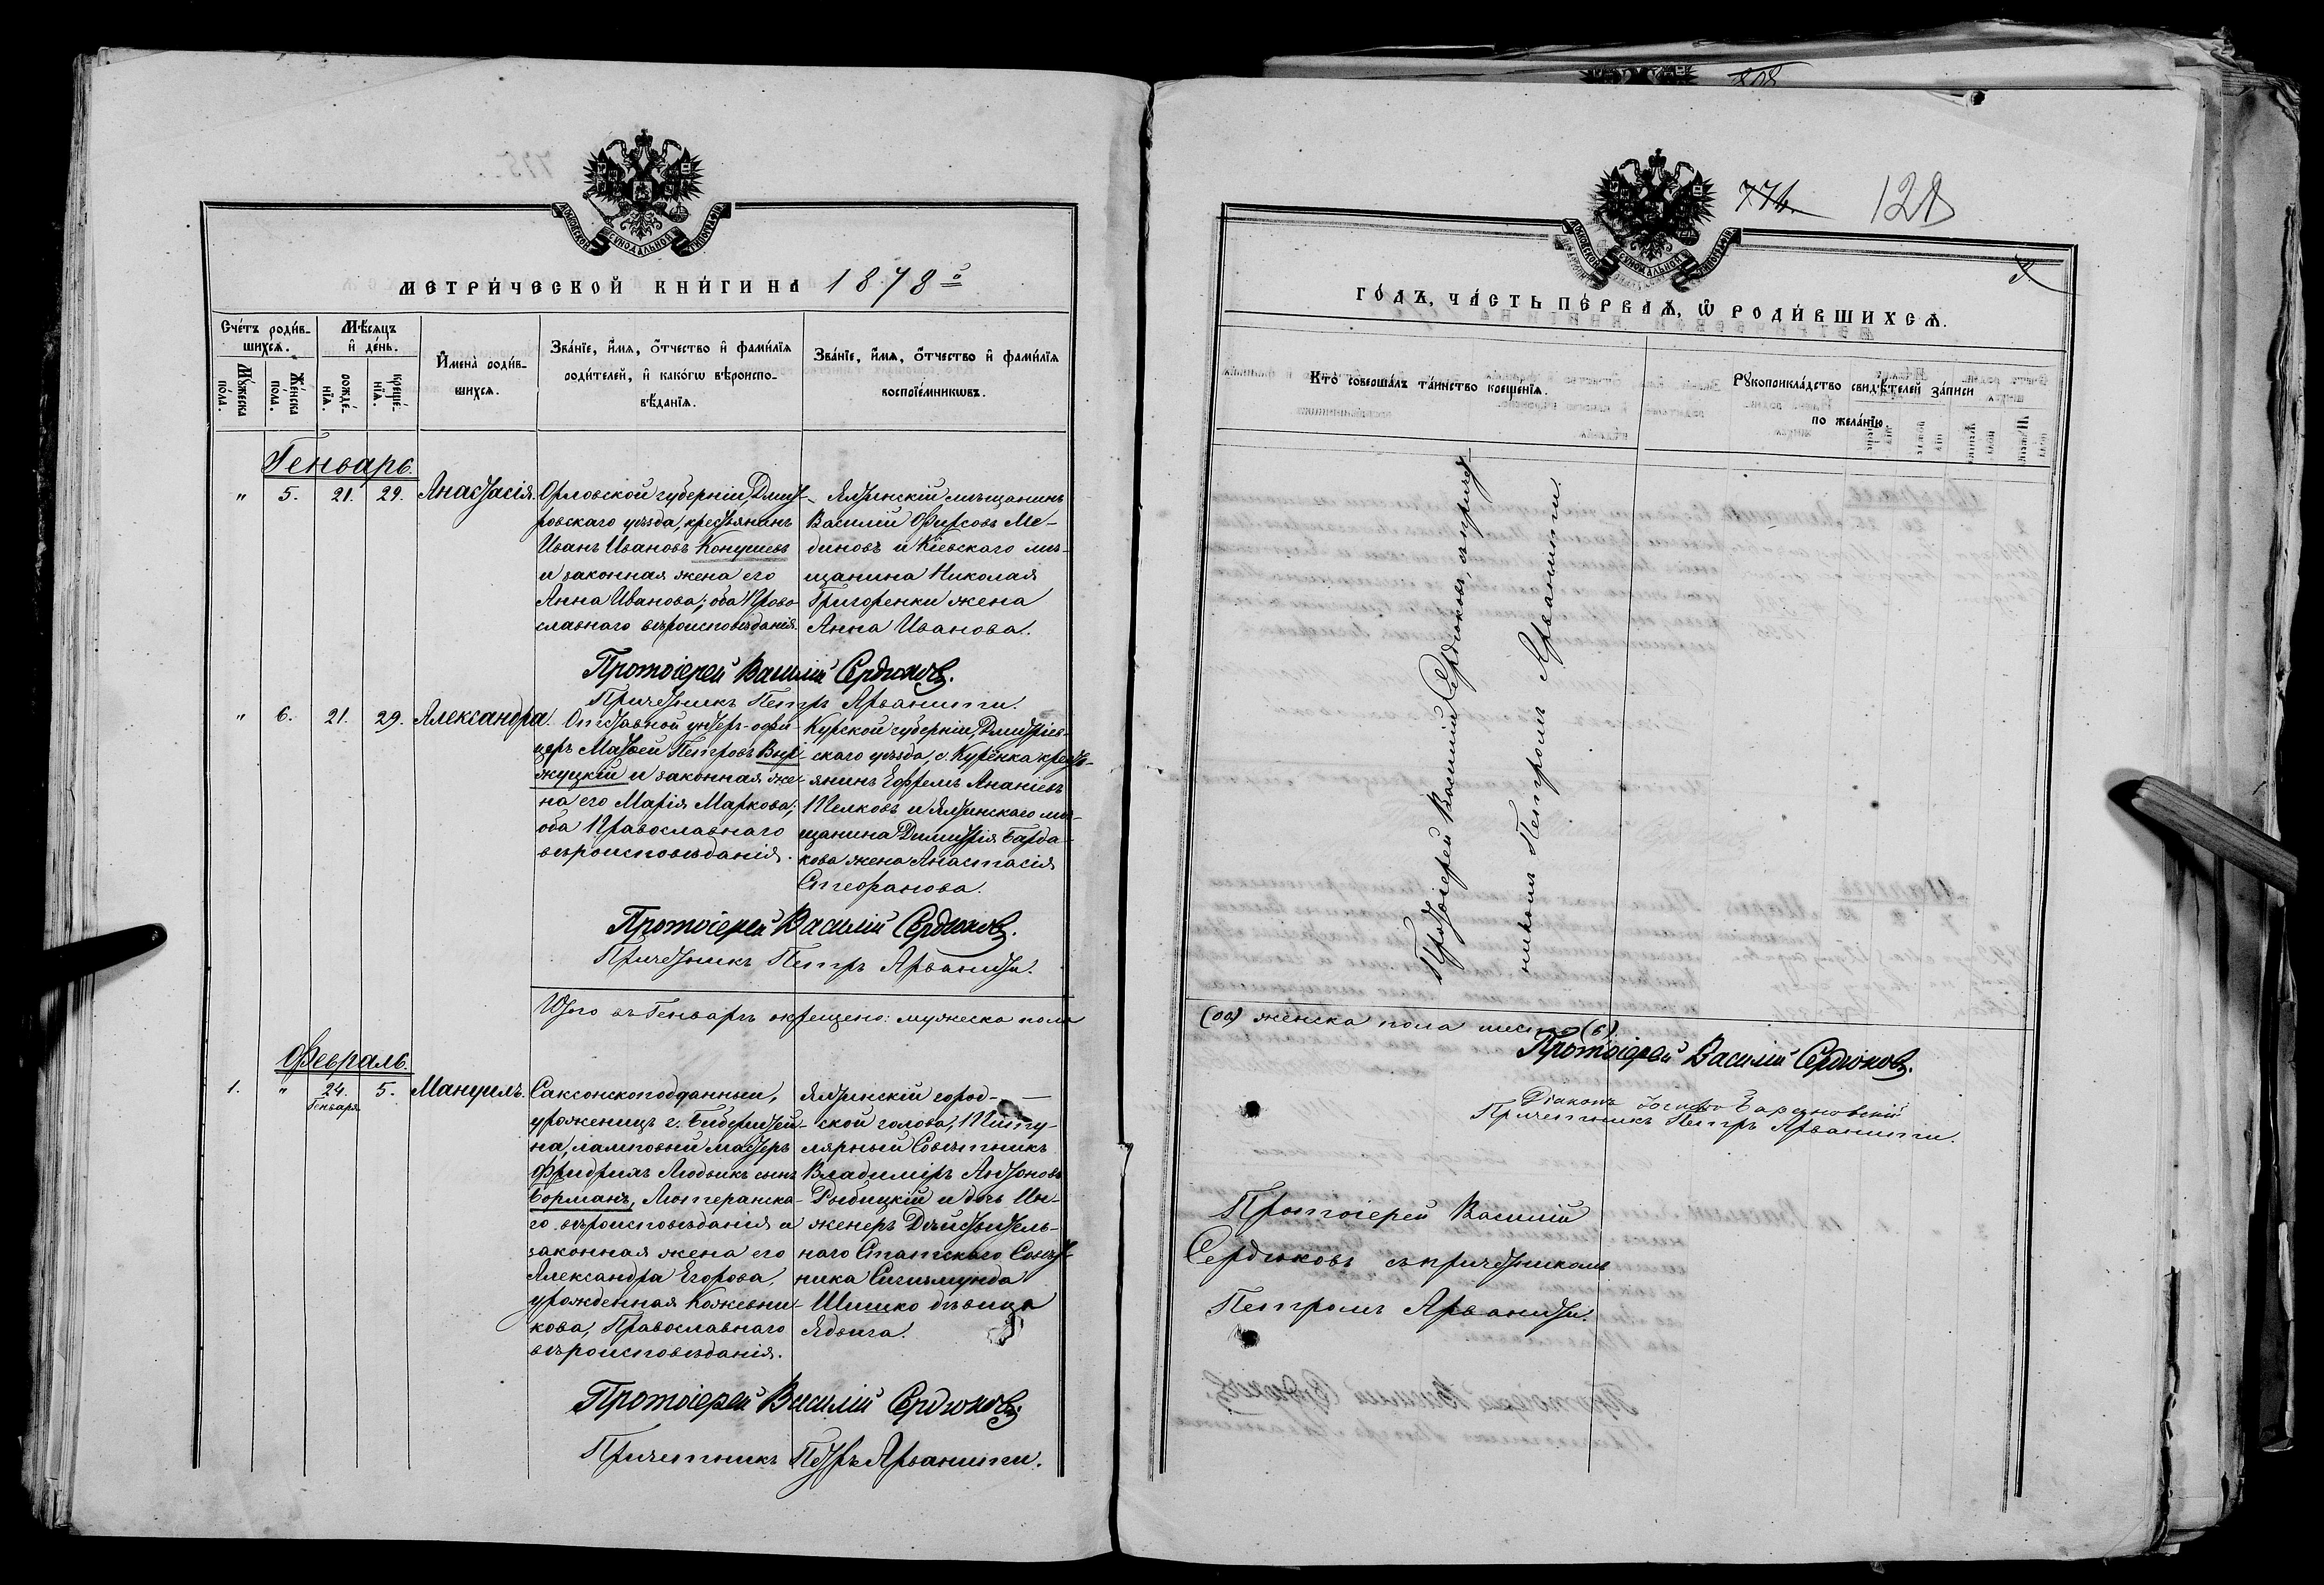 МОСКОВСКОЙ СУНОДАЛЬНОЙ ТИПОГРАФІИ
МЕТРИ́ЧЕСКОЙ КНИ́ГИ НА 1878 й
Сче́тъ роди́в-
шихсѧ.
Мѣ́сѧцъ
и҆ де́нь.
Мꙋ́жеска
по́ла.
Же́нска
по́ла.
рожде́-
нїѧ.
креще́-
нїѧ.
И҆мена̀ роди́в-
шихсѧ.
Зва́нїе, и҆́мѧ, ѻ҆́тчество и҆ фами́лїѧ
роди́телей, и҆ како́гѡ вѣ́роиспо-
вѣ́данїѧ.
Зва́нїе, и҆́мѧ, ѻ҆́тчество и҆ фами́лїѧ
воспрїе́мникѡвъ.
Генварь.
" 5. 21. 29. Анастасія.
Орловской губерніи Дмит-
ровскаго уѣзда, крестьянинъ
Иванъ Ивановъ Конушевъ
и законная жена его
Анна Иванова; оба Право
славнаго вѣроисповѣданія.
Ялтинскій мѣщанинъ
Василій Фирсовъ Ме-
диновъ и Кіевскаго мѣ-
щанина Николая
Григоренки жена
Анна Иванова.
Протоіерей Василій Сердюковъ.
Причетникъ Петръ Арванити.
" 6. 21. 29. Александра.
Отставной унтеръ-офи-
церъ Матвей Петровъ Выр
жуцкій и законная же-
на его Марія Маркова;
оба Православнаго
вѣроисповѣданія.
Курской губерніи, Дмитріев-
скаго уѣзда, с. Курёнка кресть-
янинъ Ефремъ Ананіевъ
Шелковъ и Ялтинскаго мѣ-
щанина Димитрія Барда-
кова жена Анастасія
Стефанова.
Протоіерей Василій Сердюковъ.
Причетникъ Петръ Арванити.
Итого въ Генварѣ окрещено: мужеска пола
Февраль.
1. " 24. Генваря 5. Мануилъ.
Саксонскоподданный,
уроженецъ г.
на, ламповый мастеръ
Фридрихъ Людвикъ сынъ
Борманъ, Лютеранска-
го вѣроисповѣданія и
законная жена его
Александра Егорова,
урожденная Кожевни-
кова, Православнаго
вѣроисповѣданія.
Ялтинскій город-
ской голова, Титу-
лярный Совѣтникъ
Владиміръ Антоновъ
Рыбицкій и дочь Ин-
женеръ Дѣйствитель-
наго Статскаго Совѣт-
ника Сигизмунда
Шишко дѣвица
Ядвига.
Протоіерей Василій Сердюковъ
Причетникъ Петръ Арванити.
808
774.
128
МОСКОВСКОЙ СУНОДАЛЬНОЙ ТИПОГРАФІИ
ГО́ДЪ, ЧА́СТЬ ПЕ́РВАѦ, Ѽ РОДИ́ВШИХСѦ.
Кто̀ соверша́лъ та́инство креще́нїѧ.
Рꙋкоприкла́дство свидѣ́телей за́писи
по жела́нїю.
Протоіерей Василій Сердюковъ, съ причет-
никомъ Петромъ Арванити.
(00) женска пола шесть (6)
Протоіерей Василій Сердюковъ.
Діаконъ Іосифъ Барановскій
Причетникъ Петръ Арванити.
Протоіерей Василій
Сердюковъ съ причетникомъ
Петромъ Арванити.